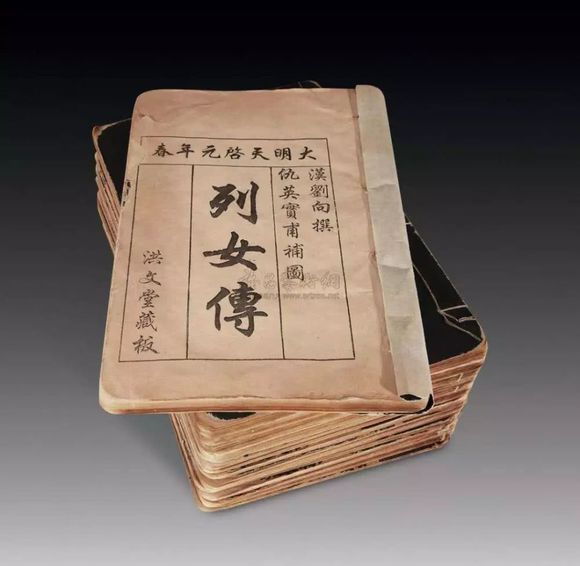 大明天啓元年春
漢劉向撰
仇英實甫補圖
列女傳
洪文堂藏板
www.artron.net